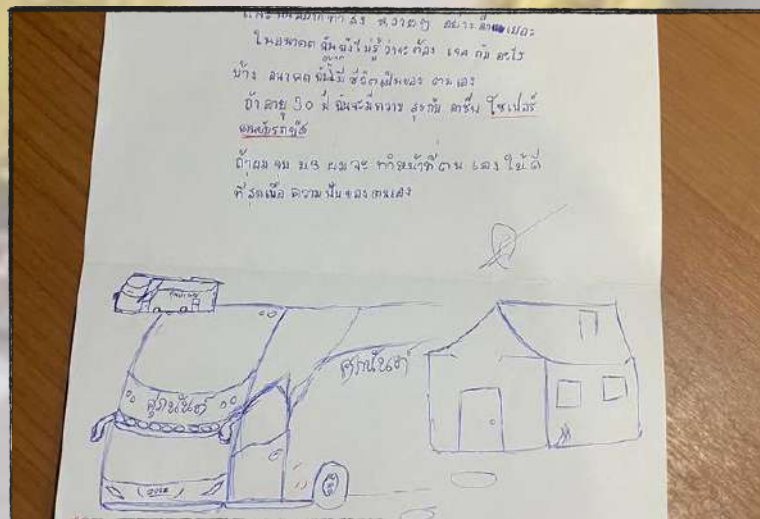 ในอนาคต ฉันยังไม่รู้ ว่าจะต้อง เจอ กับ อะไร
บ้าง อนาคต ฉันมี ชีวิตเป็นของ ตนเอง
ถ้า อายุ 30 ปี ฉันจะมีความ สุขกับ อาชีพ โชเฟอร์
ถ้าผม จบ ม3 ผม จะ ทำหน้าที่ตน เอง ให้ ดี
ที่ สุดเพื่อ ความ ฝัน ของ ตนเอง
ศุภนันท์
ศุภนันท์